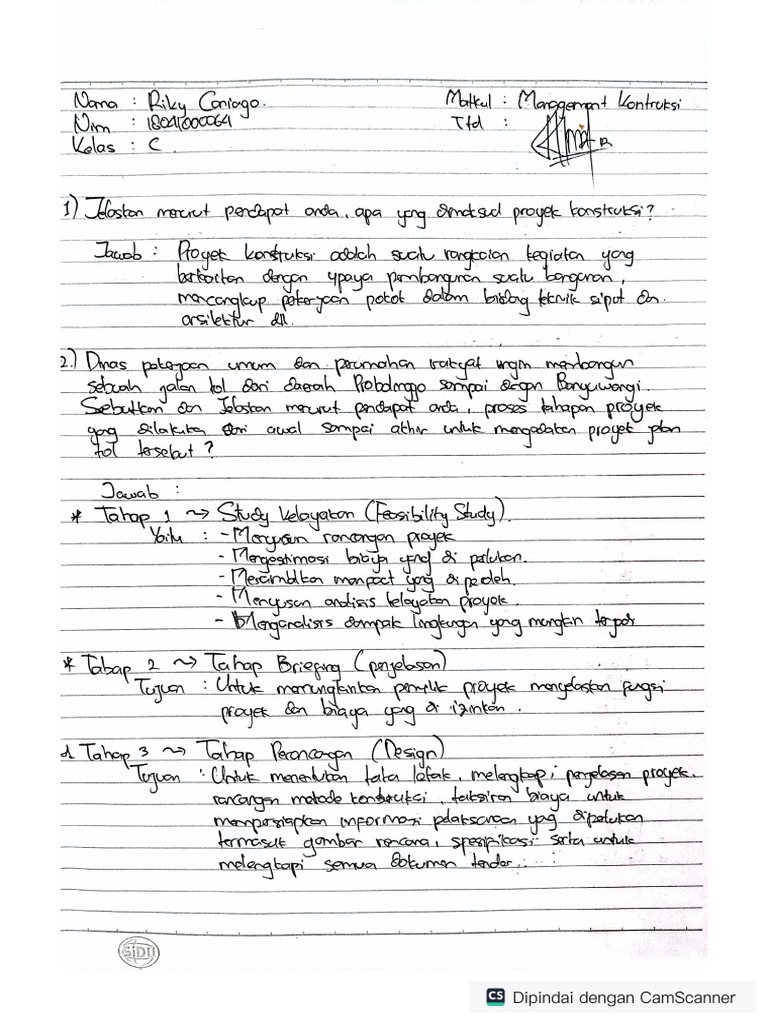 Nama : Riky Caniago.
Matkul : Manggement Kontruksi
Nim : 18041000064
Ttd :
Kelas : C.
1) Jelaskan menurut pendapat anda, apa yang dimaksud proyek konstruksi?
Jawab : Proyek konstruksi adalah suatu rangkaian kegiatan yang
berkaitan dengan upaya pembangunan suatu bangunan,
mencangkup pekerjaan pokok dalam bidang teknik sipil dan
arsitektur dll.
2.) Dinas pekerjaan umum dan perumahan rakyat ingin membangun
sebuah jalan tol dari daerah Probolinggo sampai dengan Banyuwangi.
Sebutkan dan Jelaskan menurut pendapat anda, proses tahapan proyek
yang dilakukan dari awal sampai akhir untuk mengadakan proyek jalan
tol tersebut ?
Jawab :
* Tahap 1 ~> Study kelayakan (Feasibility Study).
Yaitu : - Menyusun rancangan proyek
- Mengestimasi biaya yang di perlukan.
- Meramalkan manfaat yang diperoleh.
- Menyusun analisis kelayakan proyek.
- Menganalisis dampak lingkungan yang mungkin terjadi
* Tahap 2 ~> Tahap Briefing (penjelasan)
Tujuan : Untuk memungkinkan pemilik proyek menjelaskan fungsi
proyek dan biaya yang di izinkan.
Tahap 3 ~> Tahap Perancangan (Design)
Tujuan : Untuk menentukan tata letak, melengkapi penjelasan proyek,
rancangan metode konstruksi, taksiran biaya untuk
mempersiapkan informasi pelaksanaan yang diperlukan
termasuk gambar rencana, spesifikasi serta untuk
melengkapi semua dokumen tender.
SIDU
CS Dipindai dengan CamScanner